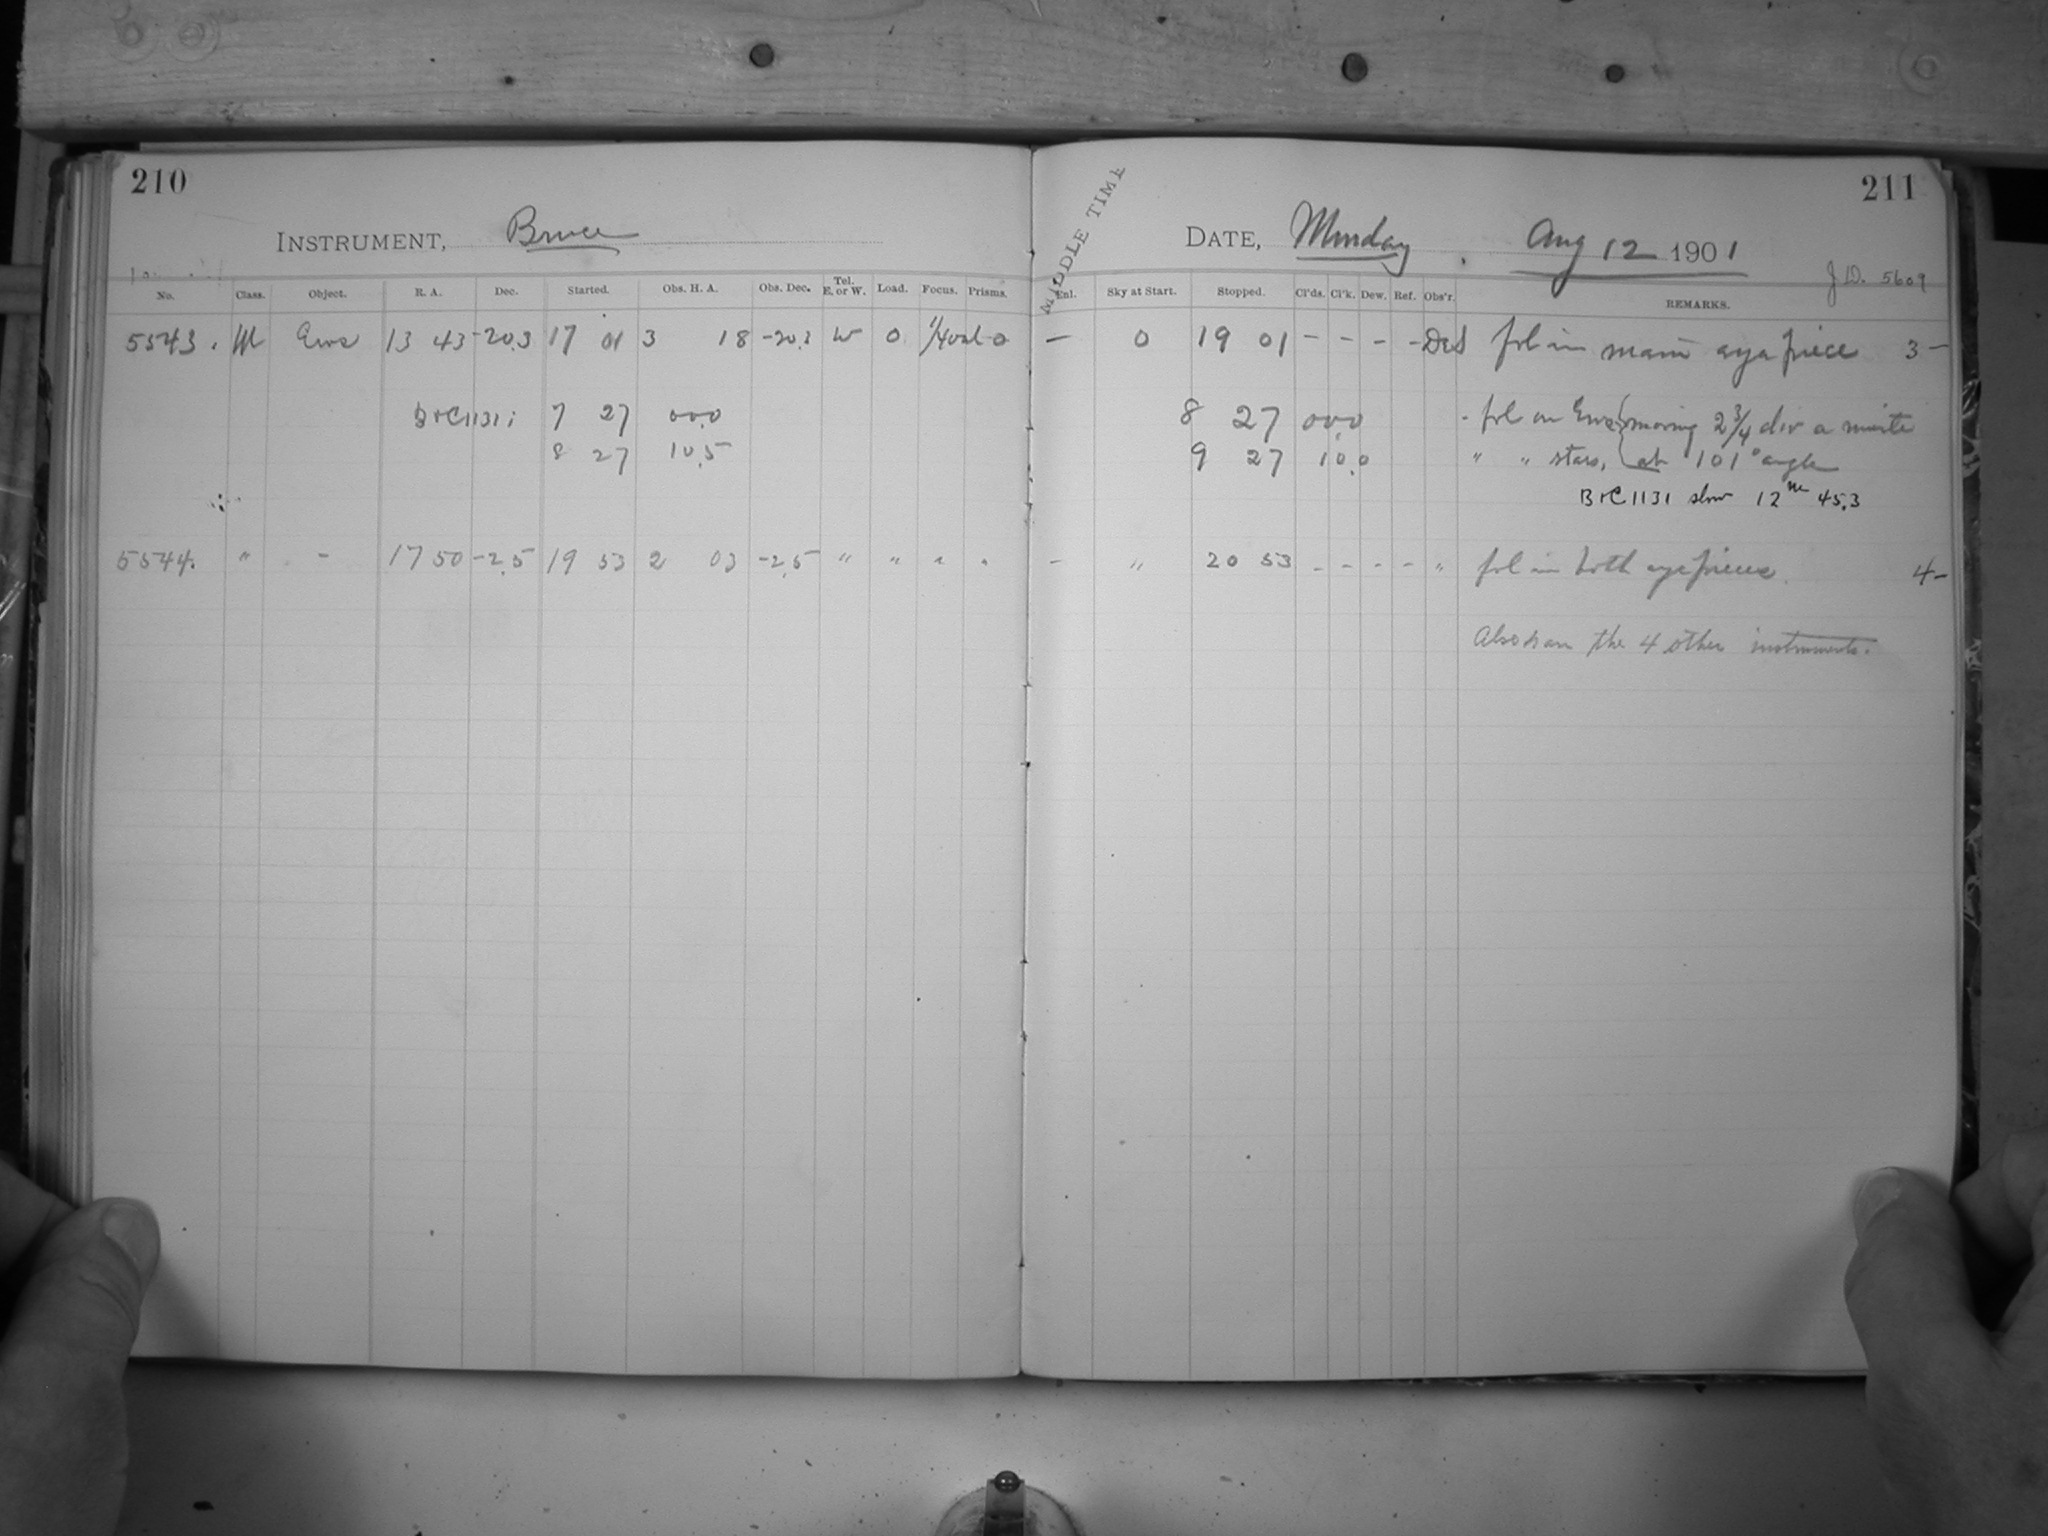 210
INSTRUMENT, Bruce
No. Class. Object. R. A. Dec. Started. Obs. H. A. Obs. Dec. Tel. E. or W. Load. Focus. Prisms.
5543. M Eros 13 43 -20.3 17 01 3 18 -20.3 W 0 0
B+C1131; 7 27 00.0
8 27 10.5
5544. " - 17 50 -2.5 19 53 2 03 -2.5 " " " "
211
MIDDLE TIME
DATE, Monday. Aug 12 1901
J D. 5609
Enl. Sky at Start. Stopped. Cl'ds. Cl'k. Dew. Ref. Obs'r. REMARKS.
— 0 19 01 - - - - DeS fol in main eye piece 3 —
8 27 00.0 - fol on Eros moving 2 3/4 div a minute
9 27 10.0 " " stars, at 101° angle
B+C1131 slow 12m 45.3
- " 20 53 - - - - " fol in both eyepieces. 4-
Also ran the 4 other instruments.